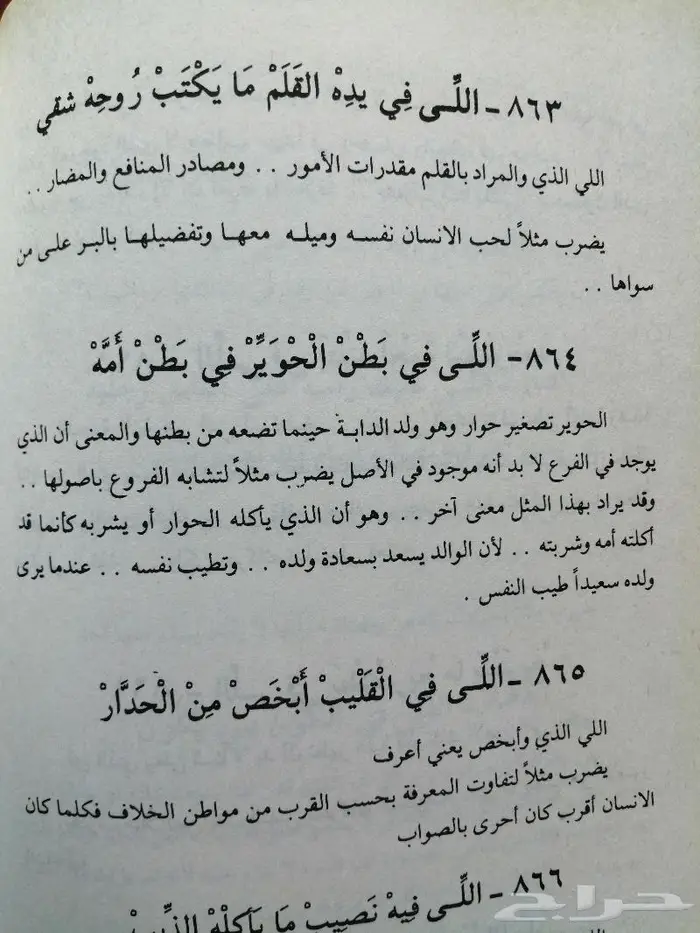 ٨٦٣ - اللِّى فِي يدِهْ القَلَمْ مَا يَكْتَبْ رُوحِهْ شقي
اللي الذي والمراد بالقلم مقدرات الأمور . . ومصادر المنافع والمضار . .
يضرب مثلاً لحب الانسان نفسه وميله معها وتفضيلها بالبر على من
سواها . .
٨٦٤ - اللِّى فِي بَطْنْ الْحْوَيِّرْ فِي بَطْنْ أُمَّهْ
الحوير تصغير حوار وهو ولد الدابة حينما تضعه من بطنها والمعنى أن الذي
يوجد في الفرع لا بد أنه موجود في الأصل يضرب مثلاً لتشابه الفروع باصولها . .
وقد يراد بهذا المثل معنى آخر . . وهو أن الذي يأكله الحوار أو يشربه كأنما قد
أكلته أمه وشربته . . لأن الوالد يسعد بسعادة ولده . . وتطيب نفسه . . عندما يرى
ولده سعيداً طيب النفس .
٨٦٥ - اللِّى فِي الْقَلْيبْ أَبْخَصْ مِنْ الْحَدَّارْ
اللي الذي وأبخص يعني أعرف
يضرب مثلاً لتفاوت المعرفة بحسب القرب من مواطن الخلاف فكلما كان
الانسان أقرب كان أحرى بالصواب
٨٦٦ - اللِّى فِيهْ نَصِيبْ مَا يَأكلْهْ الذِّيبْ
حراج